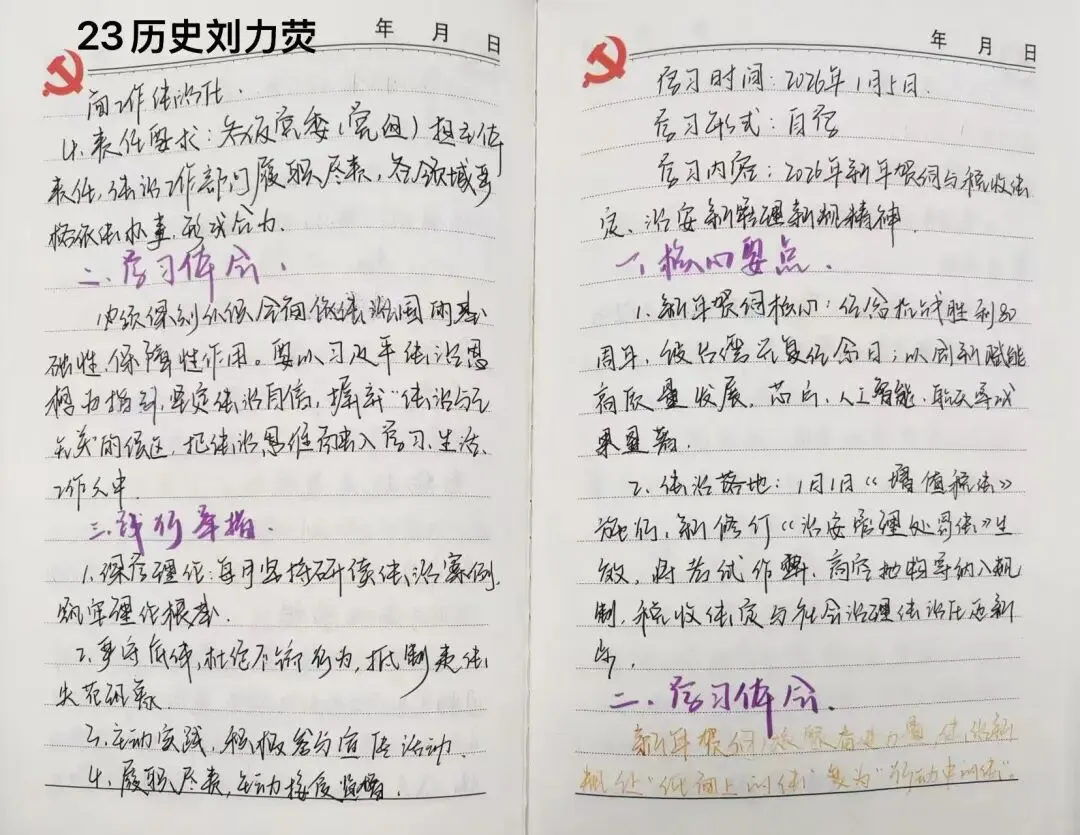 23历史刘力荧
年 月 日
面工作法治化.
4.责任要求:各级党委(党组)担主体
责任,法治工作部门履职尽责,各领域严
格依法办事,形成合力.
二、学习体会.
必须深刻认识全面依法治国的基
础性、保障性作用。要以习近平法治思
想为指引,坚定法治自信,摒弃"法治与己
无关"的误区,把法治思维融入学习、生活、
工作之中.
三、践行举措.
1.深学理论:每月坚持研读法治案例,
筑牢理论根基.
2.严守底线,杜绝不端行为,抵制违法
失范现象.
3.主动实践,积极参与宣传活动.
4.履职尽责,主动接受监督.
年 月 日
学习时间:2026年1月5日.
学习形式:自学
学习内容:2026年新年贺词与税收法
定、治安新管理新规精神.
一、核心要点.
1.新年贺词核心:纪念抗战胜利80
周年,设台湾光复纪念日;以创新赋能
高质量发展,芯片、人工智能、航天等成
果显著.
2.法治落地:1月1日《增值税法》
施行,新修订《治安管理处罚法》生
效,将考试作弊、高空抛物等纳入规
制,税收法定与社会治理法治化迈新
步.
二、学习体会.
新年贺词 力量,法治新
规让"纸面上的法"变为"行动中的法".